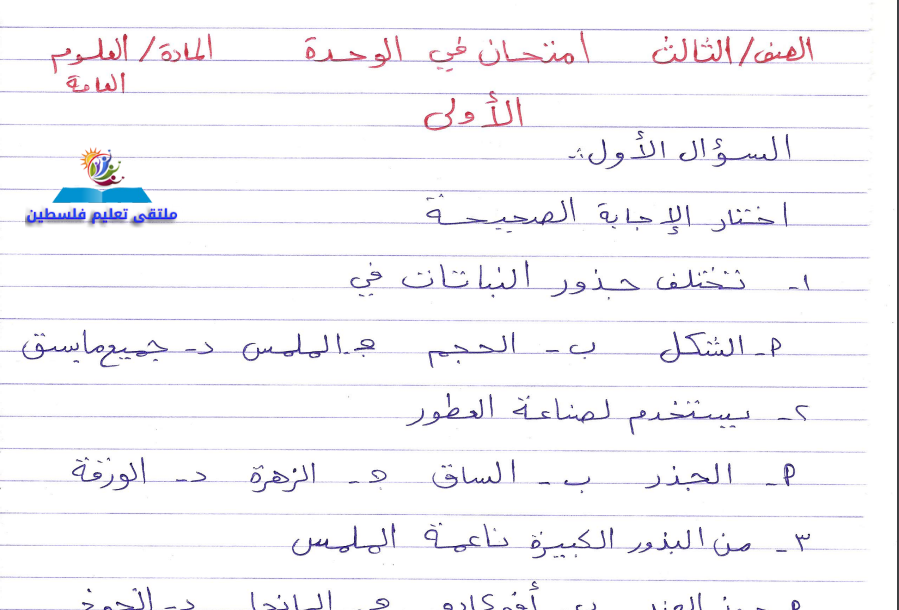 الصف/الثالث امتحان في الوحدة المادة/العلوم
العامة
الأولى
السؤال الأول:-
ملتقى تعليم فلسطين
اختار الإجابة الصحيحة
١- تختلف جذور النباتات في
أ- الشكل ب- الحجم ج- الملمس د- جميع ماسبق
٢- يستخدم لصناعة العطور
أ- الجذر ب- الساق ج- الزهرة د- الورقة
٣- من البذور الكبيرة ناعمة الملمس
أ جوز الهند ب- أفوكادو ج- البانجا د- الخوخ